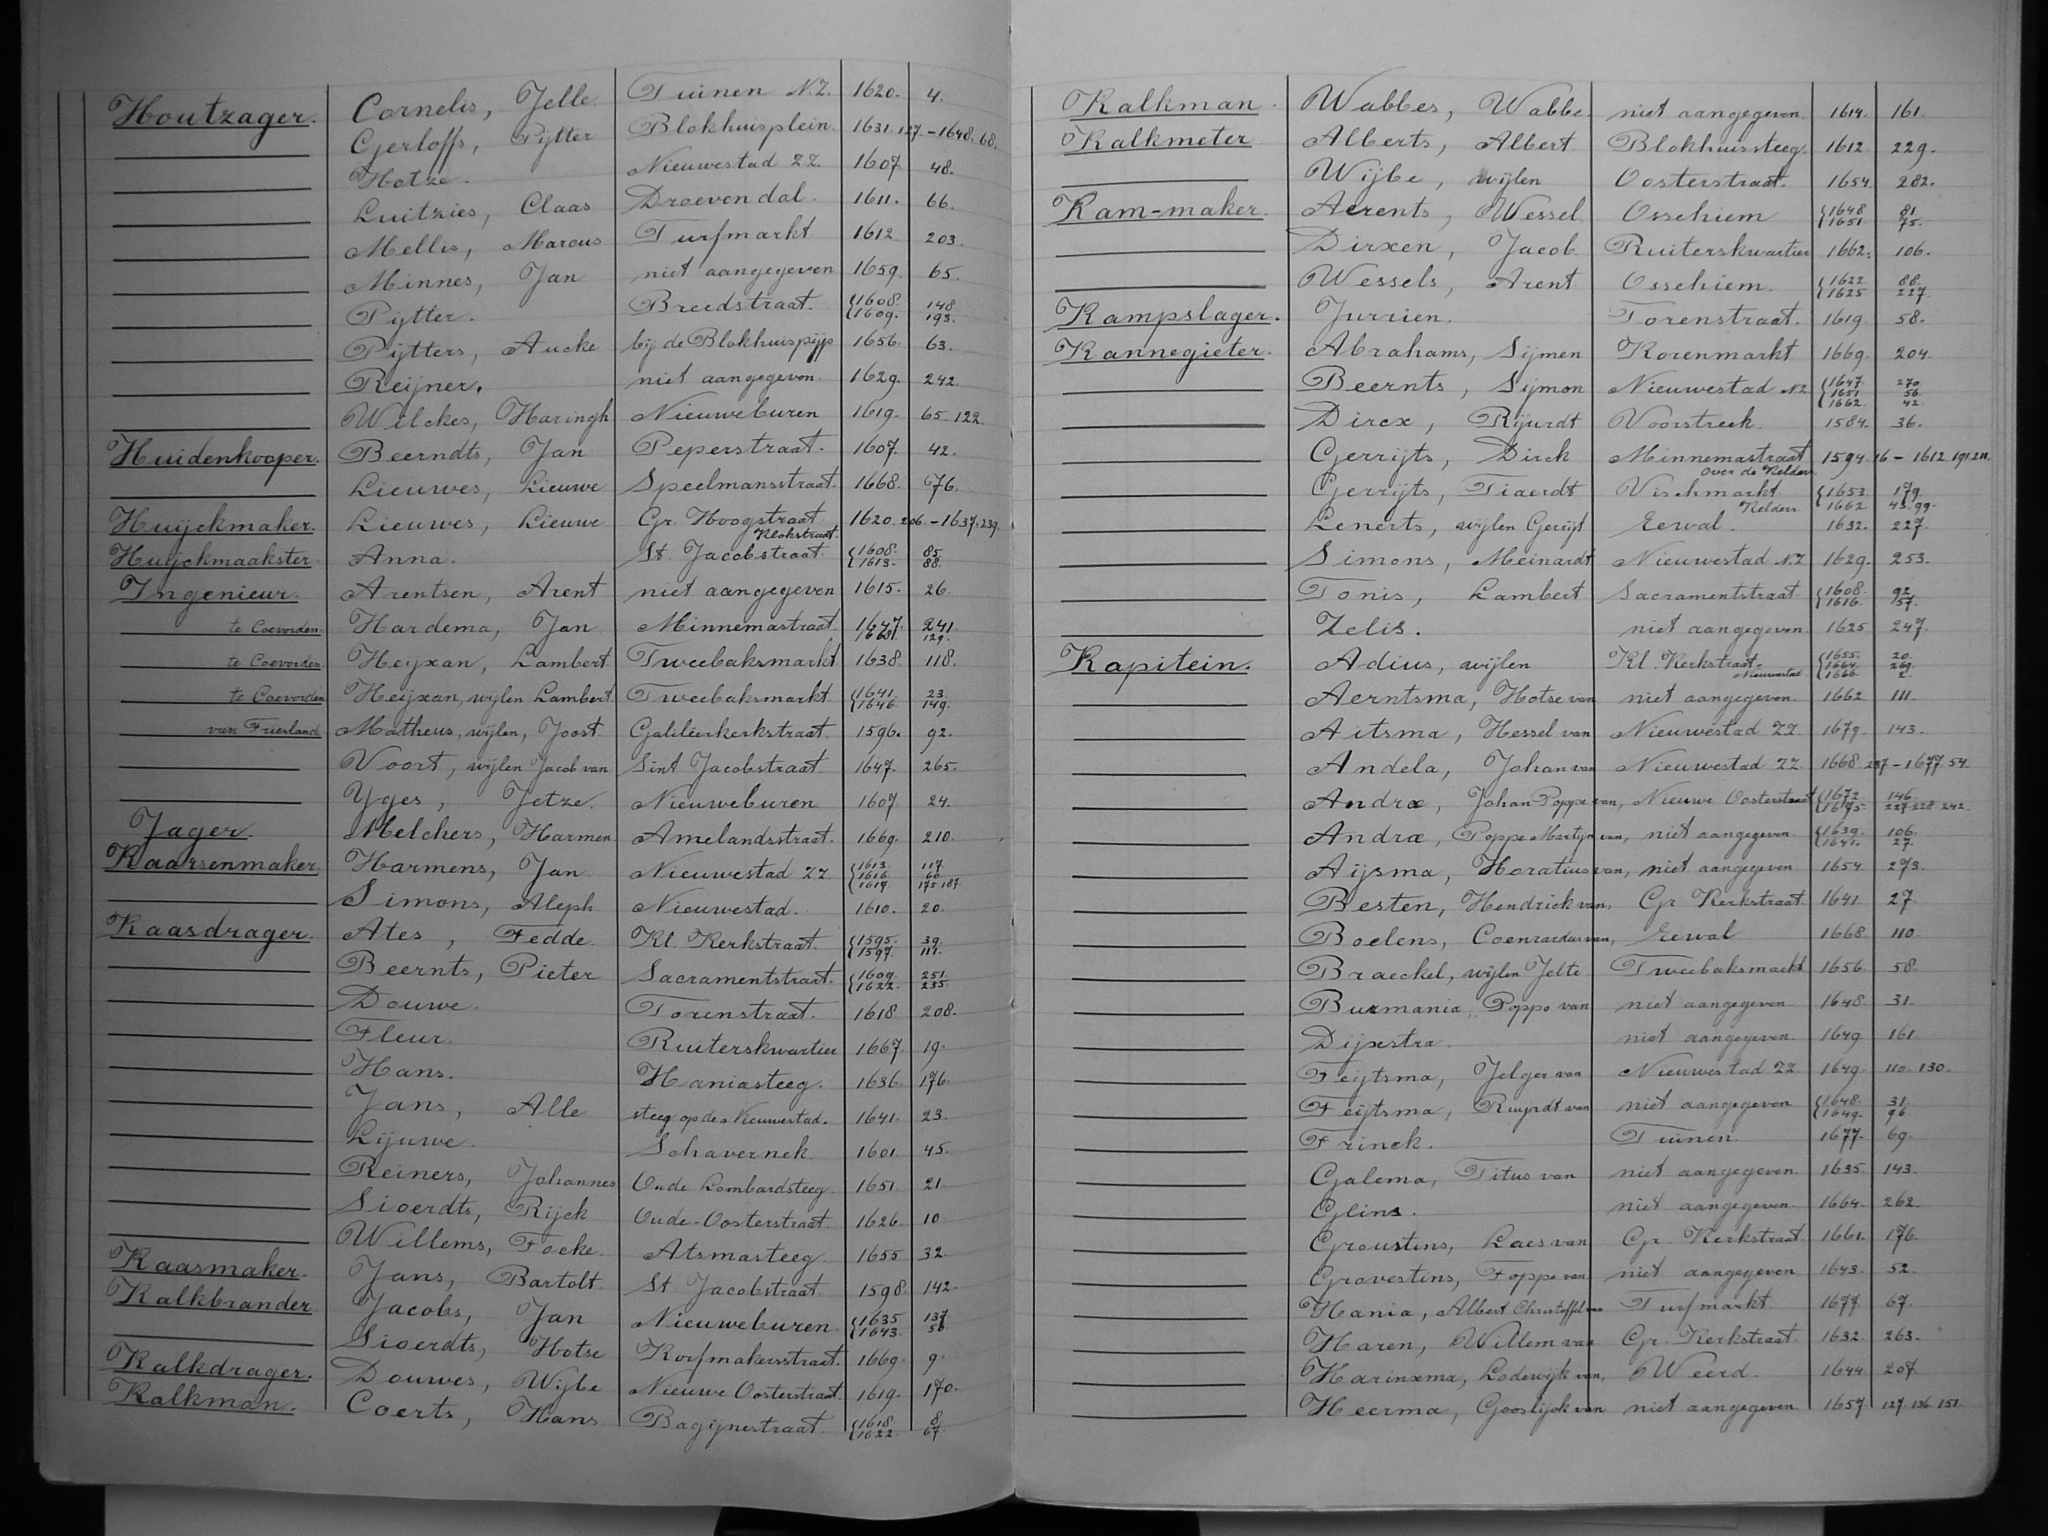 Houtzager. Cornelis, Jelle Tuinen N.Z. 1620. 4.
Gerloffs, Pytter Blokhuisplein. 1631. 127. - 1648. 68.
Hotze. Nieuwestad ZZ. 1607 48.
Luitzies, Claas Droevendal. 1611. 66.
Mellis, Marcus Turfmarkt 1612 203.
Minnes, Jan niet aangegeven 1659. 65.
Pijtter. Breedstraat. {1608. 148
{1609. 193.
Pijtters, Aucke bij de Blokhuispijp 1656. 63.
Reijner. niet aangegeven 1629. 242.
Wilckes, Haringh Nieuweburen 1619. 65-122.
Huidenkooper. Beerndts, Jan Peperstraat. 1607. 42.
Lieuwes, Lieuwe Speelmansstraat. 1668. 76.
Huijckmaker. Lieuwes, Lieuwe Gr. Hoogstraat 1620. 206. - 1637. 239.
Klokstraat.
Huijckmaakster. Anna. St. Jacobstraat. {1608. 85.
{1613. 88.
Ingenieur. Arentsen, Arent niet aangegeven 1615. 26.
te Coevorden. Hardema, Jan Minnemastraat 1647. 241.
129.
te Coevorden Heijxan, Lambert Tweebaksmarkt 1638. 118.
te Coevorden Heijxan, wijlen Lambert Tweebaksmarkt {1641. 23.
{1646. 149.
van Friesland Matheus, wijlen, Joost Galileërkerkstraat. 1596. 92.
Voort, wijlen Jacob van Sint Jacobstraat. 1647. 265.
Yges, Jetze. Nieuweburen. 1607 24.
Jager. Melchers, Harmen Amelandsstraat. 1669. 210.
Kaarsenmaker. Harmens, Jan Nieuwestad ZZ {1613. 117.
{1616. 60.
{1617 175.187.
Simons, Aleph Nieuwestad. 1610. 20.
Kaasdrager. Ates, Fedde. Kl. Kerkstraat. {1595. 39.
{1597. 117.
Beernts, Pieter Sacramentstraat. {1609. 251.
{1622. 235.
Douwe. Torenstraat. 1618. 208.
Fleur. Ruiterskwartier 1667. 19.
Hans. Haniasteeg. 1636. 176.
Jans, Alle steeg op de Nieuwestad. 1641. 23.
Lijuwe. Schavernek. 1601. 45.
Reiners, Johannes Oude Lombardsteeg. 1651. 21.
Sioerdts, Rijck Oude-Oosterstraat 1626. 10.
Willems, Focke. Atsmasteeg. 1655 32.
Kaasmaker. Jans, Bartolt. St. Jacobstraat. 1598. 142.
Kalkbrander Jacobs, Jan Nieuweburen. {1635 137.
{1643. 56.
Sioerdts, Hotse Korfmakersstraat. 1669. 9.
Kalkdrager. Douwes, Wijbe Nieuwe Oosterstraat. 1619. 170.
Kalkman. Coerts, Hans Bagijnestraat {1618. 8.
{1622. 67.
Kalkman. Wabbes, Wabbe niet aangegeven 1614. 161.
Kalkmeter Alberts, Albert Blokhuissteeg. 1612 229.
Wijbe, wijlen Oosterstraat. 1654. 282.
Kam-maker. Aerents, Wessel Ossehiem {1648. 81.
{1651. 75.
Dirxen, Jacob. Ruiterskwartier 1662. 106.
Wessels, Arent Ossehiem. {1622 88.
{1625. 227.
Kampslager. Jurrien. Torenstraat. 1619. 58.
Kannegieter. Abrahams, Sijmen Korenmarkt 1669. 204.
Beernts, Sijmon Nieuwestad NZ {1647. 270.
{1651. 56.
{1662. 42.
Dircx, Rijurdt Voorstreek. 1584. 36.
Gerrijts, Dirck Minnemastraat 1594. 16 - 1612. 191.211.
Over de Kelders
Gerrijts, Tiaerdt Vischmarkt {1653. 179.
Kelders {1662 45.99.
Lenerts, wijlen Gerijt Eewal. 1632. 227.
Simons, Meinardt Nieuwestad NZ 1629. 253.
Tonis, Lambert Sacramentstraat. {1608. 92.
{1616. 57.
Zelis. niet aangegeven 1625 247.
Kapitein. Adius, wijlen Kl. Kerkstraat. {1655. 20.
{1664. 269.
Nieuwestad {1666. 2.
Aerntsma, Hotse van niet aangegeven. 1662 111.
Aitsma, Hessel van Nieuwestad ZZ 1679. 143.
Andela, Johan van Nieuwestad ZZ. 1668. 237 - 1677 54.
Andræ, Johan Poppe van, Nieuwe Oosterstraat {1672. 146.
{1675. 227.228.242.
Andræ, Poppe Martijn van, niet aangegeven {1639. 106.
{1641. 27.
Aijsma, Horatius van, niet aangegeven 1654. 273.
Besten, Hendrick van, Gr Kerkstraat. 1641. 27.
Boelens, Coenradus van, Eewal 1668. 110.
Braeckel, wijlen Jelte Tweebaksmarkt 1656. 58.
Burmania, Poppo van niet aangegeven. 1648. 31.
Dijxstra. niet aangegeven. 1649. 161.
Feijtsma, Jelger van Nieuwestad ZZ. 1649. 110. 130.
Feijtsma, Ruurdt van niet aangegeven {1648. 31.
{1649. 96
Frinck. Tuinen. 1677. 69.
Galema, Titus van niet aangegeven. 1635. 143.
Glins. niet aangegeven 1664. 262.
Groustins, Laes van Gr. Kerkstraat. 1661. 176.
Grovestins, Foppe van niet aangegeven 1643. 52.
Hania, Albert Christoffel van Turfmarkt 1677 67.
Haren, Willem van Gr. Kerkstraat. 1632. 263.
Harinxma, Lodewijk van, Weerd. 1644. 207.
Heerma, Gooslijck van niet aangegeven 1657 127. 136. 151.